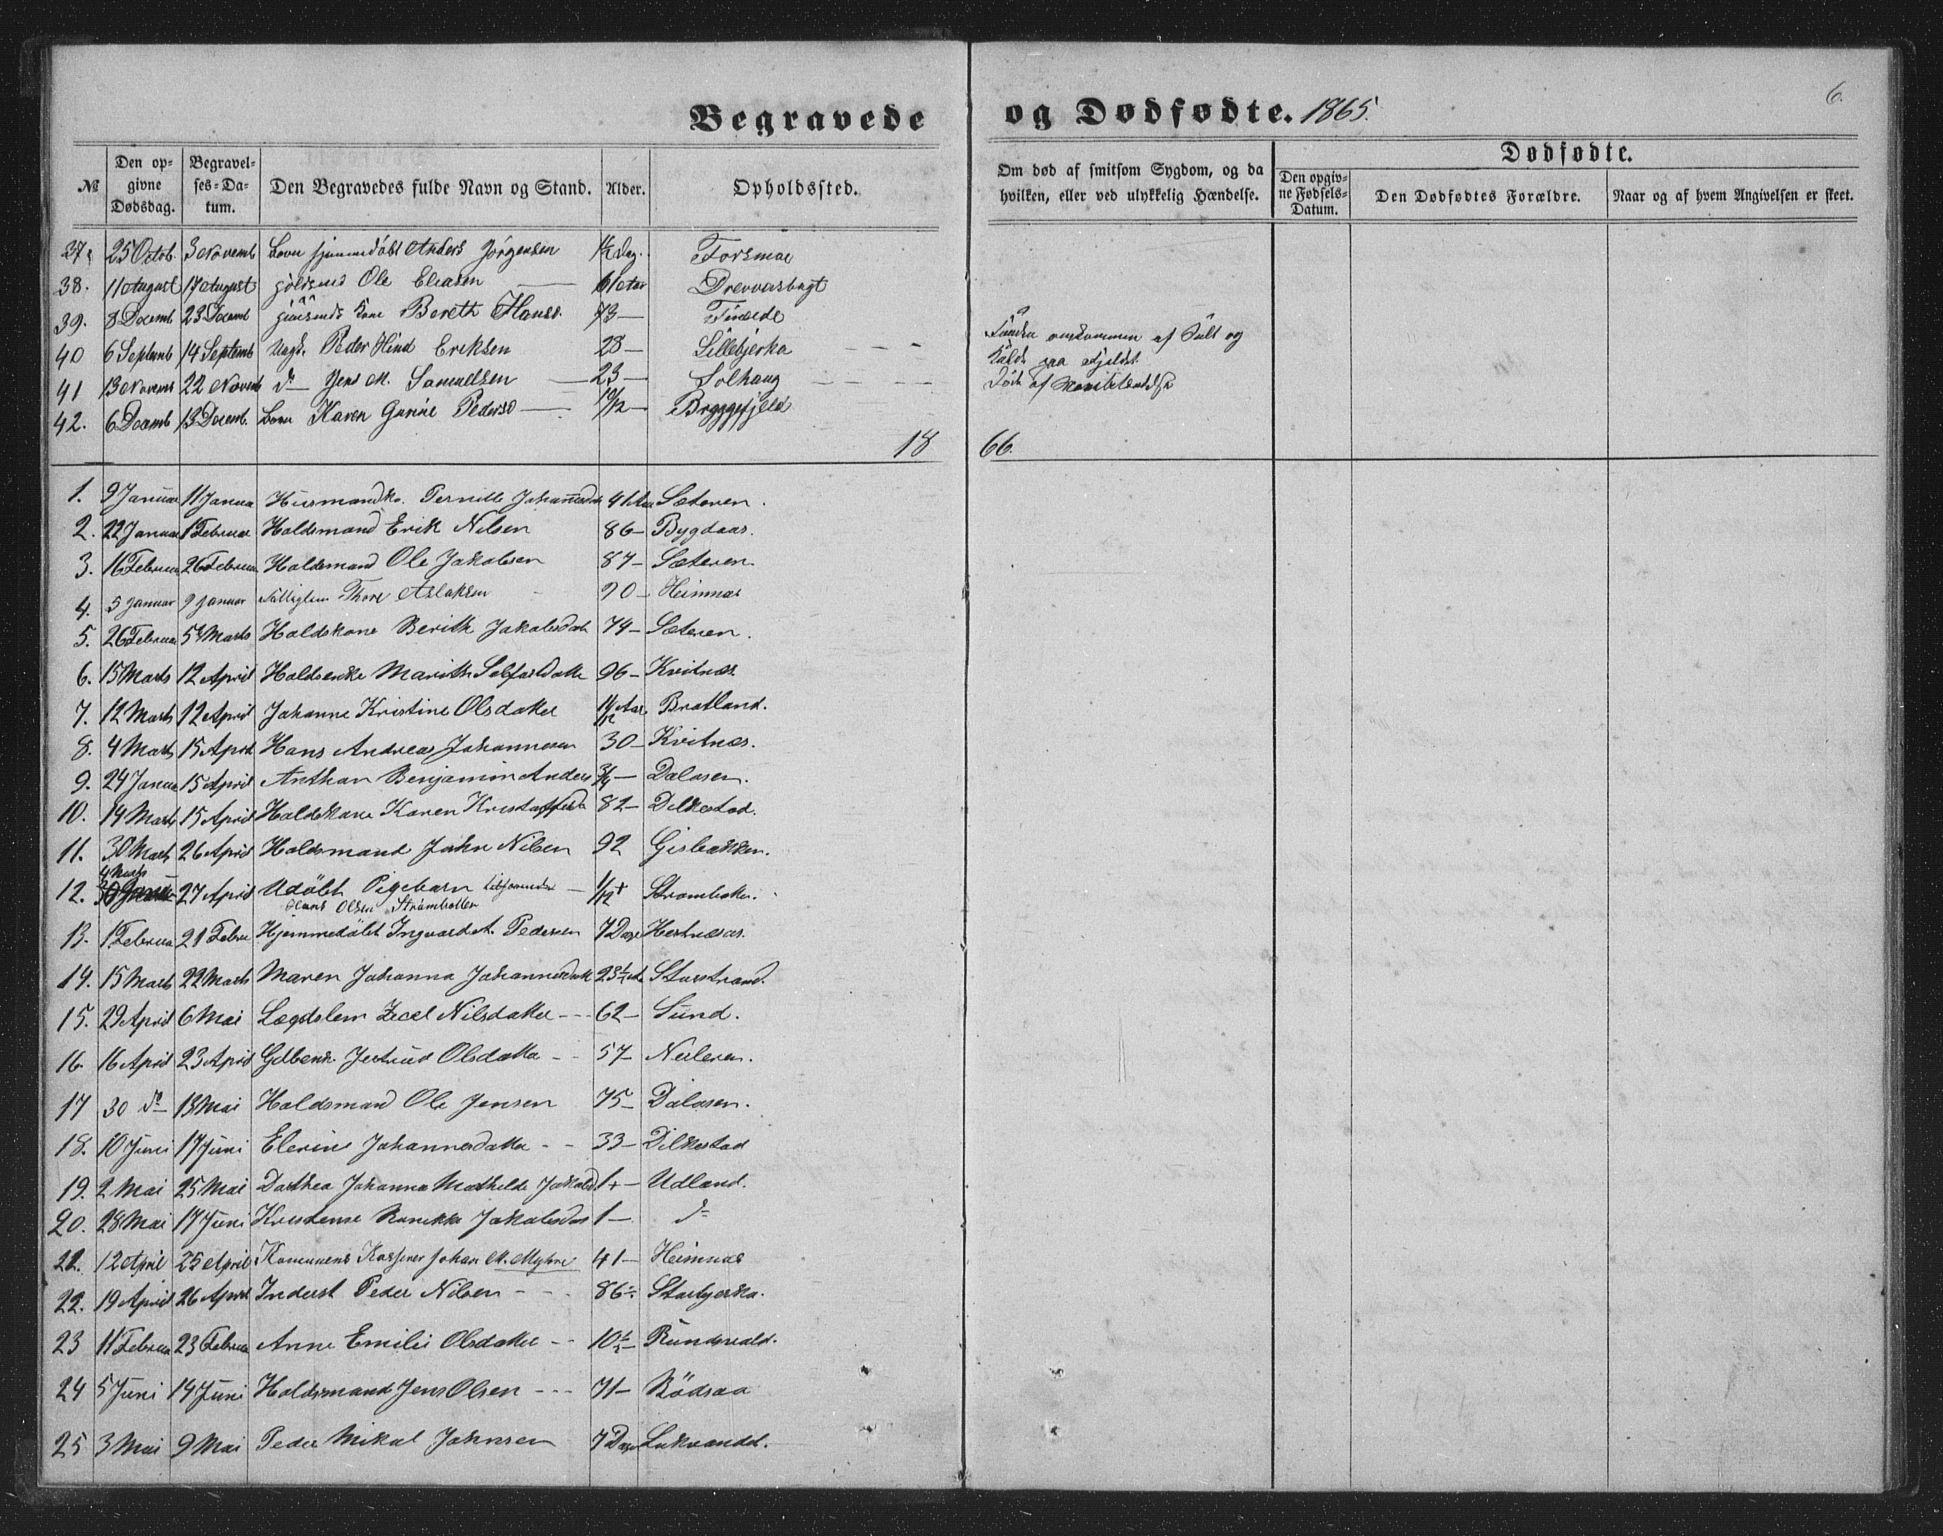 Begravede og Dødfødte. 1865. 6.
№ Den opgivne Dødsdag. Begravelses-Datum. Den Begravedes fulde Navn og Stand. Alder. Opholdssted. Om død af smitsom Sygdom, og da hvilken, eller ved ulykkelig Hændelse. Dødfødte. Den opgivne Fødsels-Datum. Den Dødfødtes Forældre. Naar og af hvem Angivelsen er skeet.
37. 25 Octob. 3 Novemb Anders Jørgensen 1/2 Dag. Forsmoe
38. 11 August 17 August Ole Eliasen 61 Aar Drevvasbugt
39. 8 Decemb 23 Decemb Kone Bereth Hansd. 73 —
40 6 Septemb 14 Septemb Ungk. Peder Hind Eriksen 28 — Lillebjerka omkommen af Sult og
Kulde paa Fjeldet.
41 13 Novemb 22 Novemb do Jens M. Samuelsen 23 — Solhaug Død af
42. 6 Decemb 13 Decemb. Karen Gurine Pedersd 10/12 — Bryggefjeld
18 66.
1. 9 Januar 11 Janua Husmandko. Pernille Johannesdat 41 Aar Sæteren.
2. 22 Januar 1 Februar Holdsmand Erik Nilsen 86 — Bygdaas.
3. 16 Februa 26 Februa Holdsmand Ole Jakobsen 87 — Sæteren.
4. 5 Januar 9 Januar Fattiglem Thore Aslaksen 90 — Heimnæs
5. 26 Februa 5 Marts Holdskone Berith Jakobsdat 74 — Sæteren.
6. 15 Marts 12 April Holdsenke Marith 96 — Kvitnæs
7. 12 Marts 12 April Johanne Kristine Olsdatter 11/12 Aar Bratland.
8. 4 Marts 15 April Hans Andreas Johannesen 30 — Kvitnæs.
9. 24 Janua 15 April Anthon Benjamin Anders 3/4 — Dalosen.
10. 14 Marts 15 April Holdskone Karen Kristoffersd 82 — Dilkestad.
11. 30 Marts 26 April Holdsmand John Nilsen 92 Gisbakken.
4 Marts
12. 27 April Udøbt Pigebarn 1/12 +
Hans Olsen Strømbotten
13. 1 Februa 21 Febru Hjemmedøbt Ingvard A. Pedersen 7 Dage Hestnæsøs.
14. 15 Marts 22 Marts Maren Johanna Johannesdatt 23 1/2 Storstrand.
15. 29 April 6 Mai Lægdslem Zecel Nilsdatter 62 — Sund.
16. 16 April 23 April Jertrud Olsdatter 57 — Neleren.
17 30 do 13 Mai Holdsmand Ole Jensen 75 — Dalosen.
18. 10 Juni 17 Juni Elerine Johannesdatter 33 — Dilkestad
19. 2 Mai 25 Mai Dorthea Johanna Mathilde Jakobsd 1 — Udland.
20. 28 Mai 17 Juni Kristense Rønikke Jakobsdat 1 — do
22. 12 April 25 April Kommunens Kasserer Johan M. Myhre 41 — Heimnæs
22. 19 April 26 April Inderst Peder Nilsen 86 Storbjerka.
23 11 Februa 23 Februa Anne Emilie Olsdatter 10 1/2 — Rundvald.
24 5 Juni 14 Juni Holdsmand Jens Olsen 71 — Rødsaa
25 3 Mai 9 Mai Peder Mikal Johnsen 7 Dage Lukvandd.